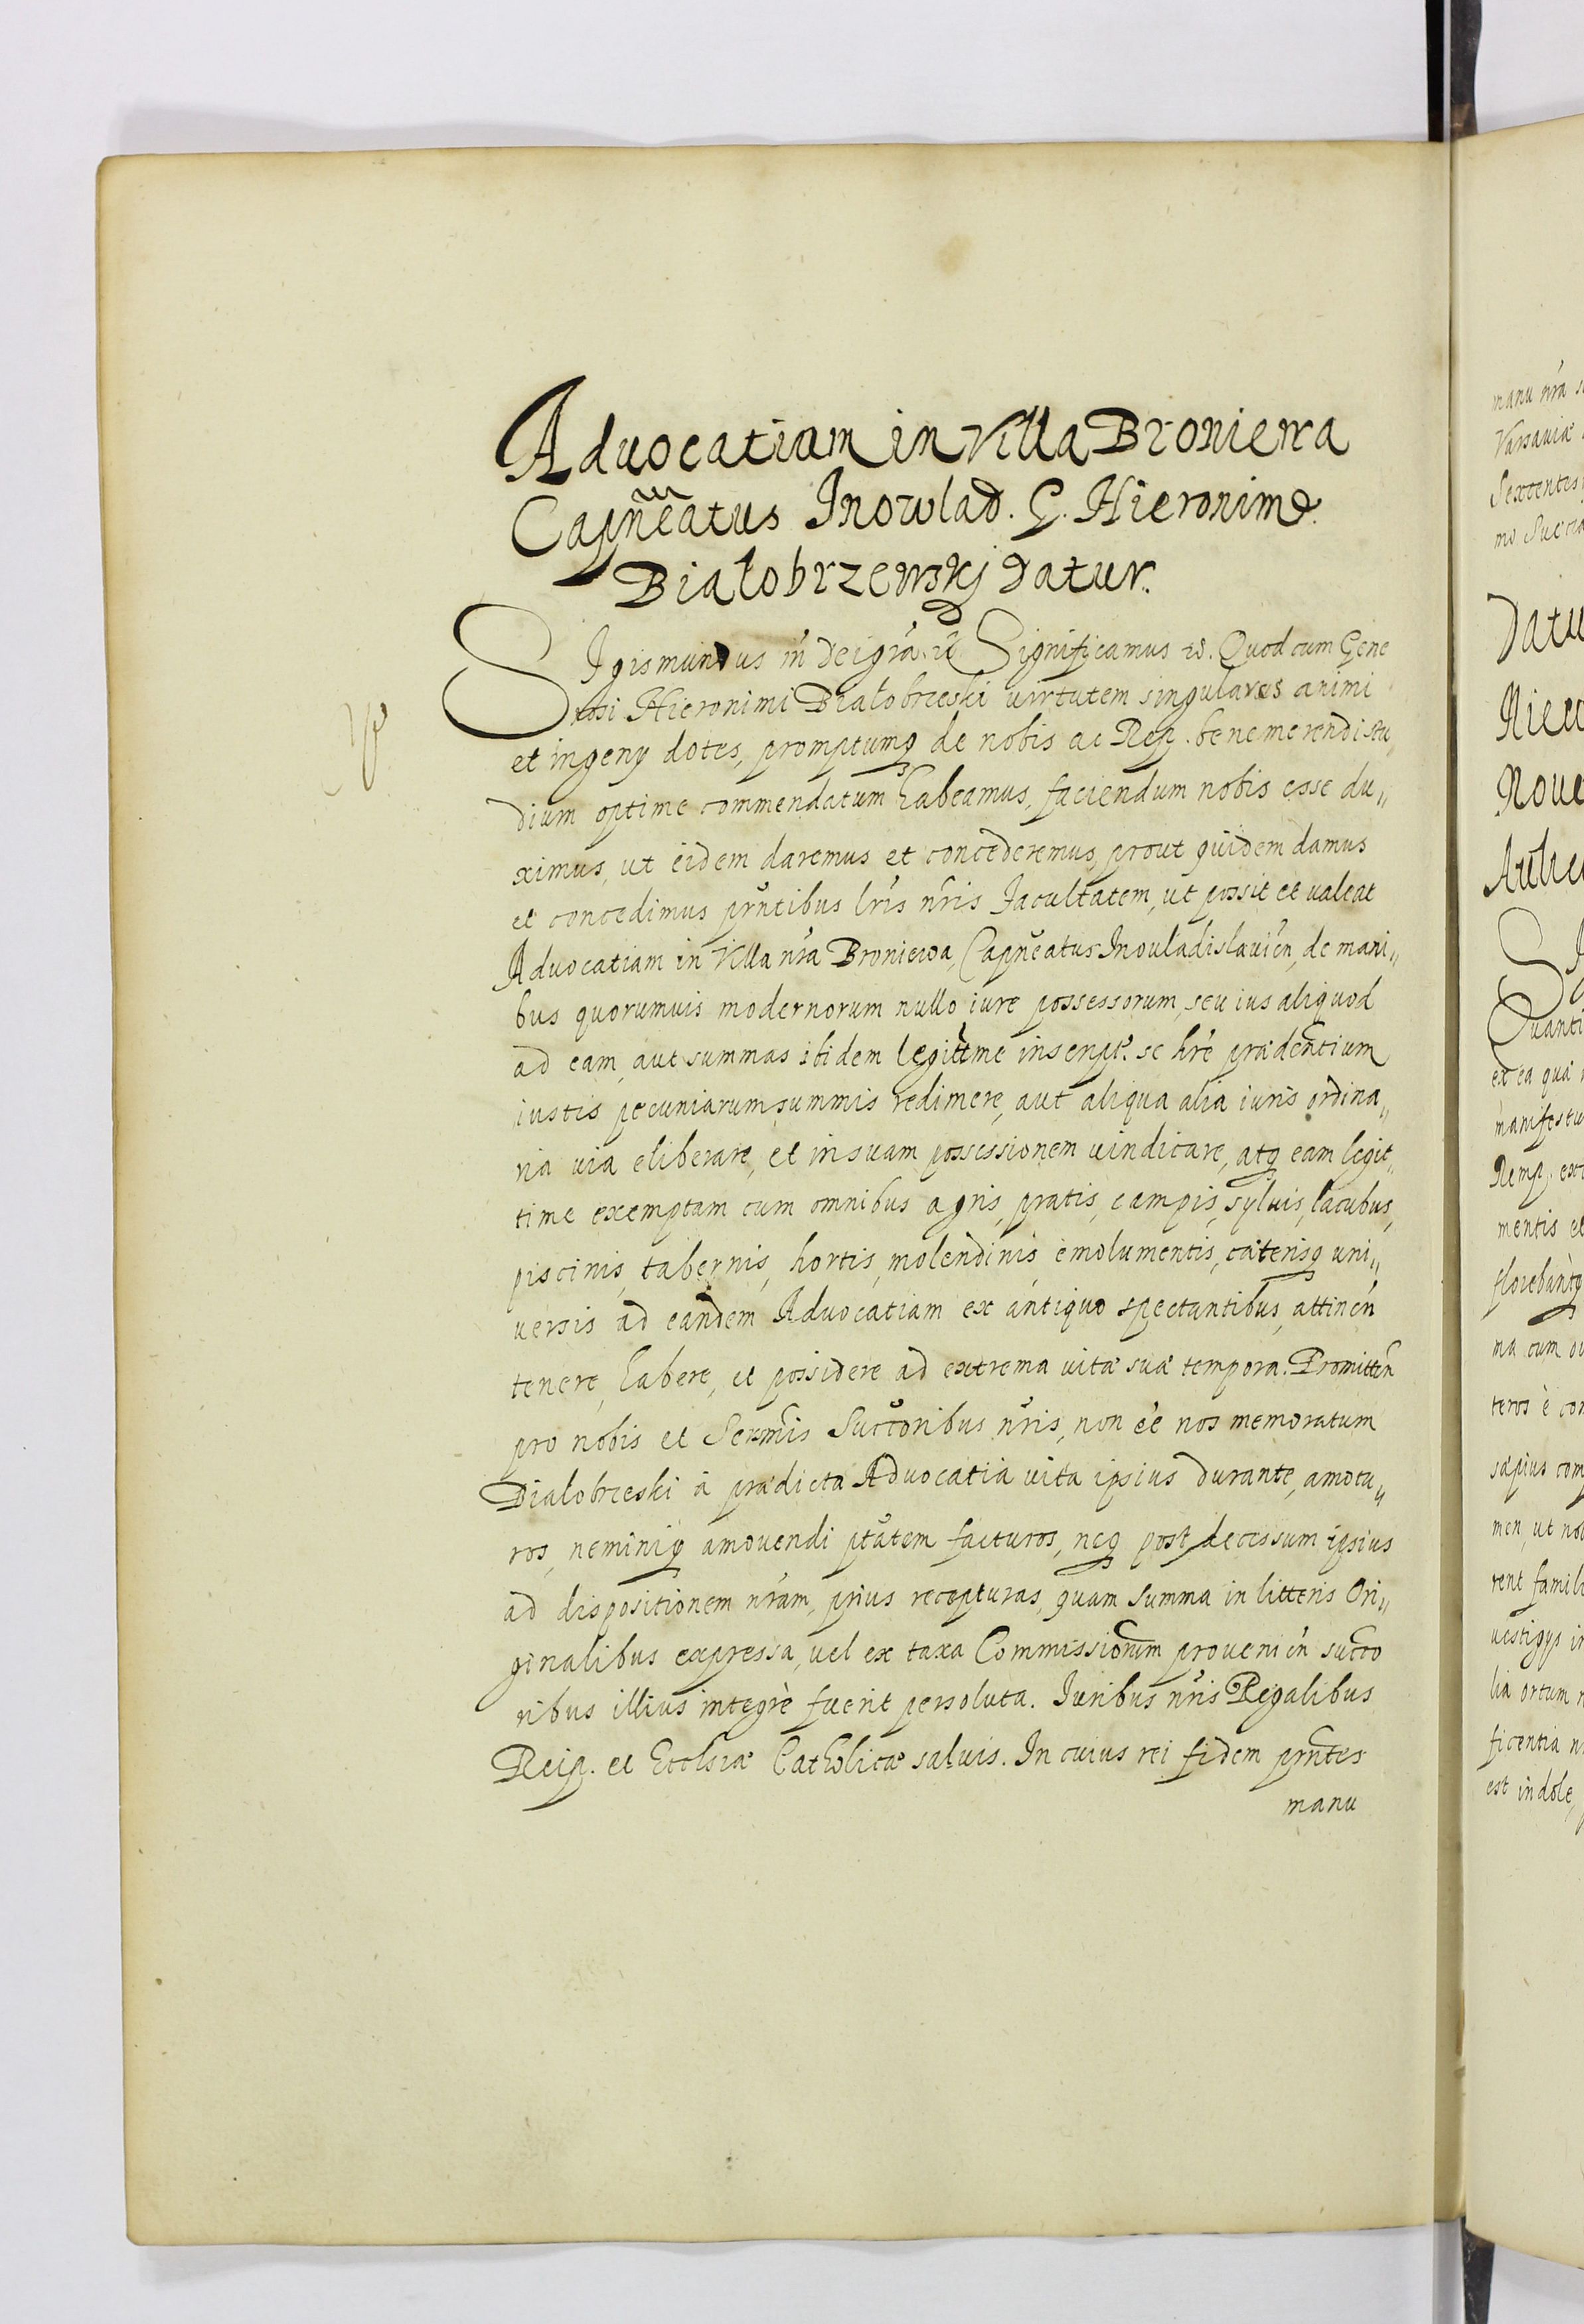 Advocatiam in Villa Broniewa
Capn̄eatus Inowlad. G. Hieronimo
Białobrzewskj datur.
SIgismundus in dei grã Significamus Quod cum Gene
rosi Hieronimi Białobrzeski virtutem singulares animi
et ingenÿ dotes, promptumq de nobis ac Rep. benemerendi stu„
dium optime commendatum habeamus, faciendum nobis esse du„
ximus, ut eidem daremus et concederemus, prout quidem damus
et concedimus prñtibus lris nr̃is Facultatem, ut possit et valeat
Advocatiam in Villa nrã Broniewa, Capn̄eatus Inouladislauien̄, de mani„
bus quorumuis modernorum nullo iure possessorum, seu ius aliquod
ad eam, aut summas ibidem legittime inscript. se hrẽ prædentium
iustis pecuniarum summis redimere, aut aliqua alia iuris ordina„
ria via eliberare, et in suam possessionem vindicare, atq eam legit„
time exemptam cum omnibus agris, pratis, campis, syluis, lacubus,
piscinis, tabernis, hortis, molendinis emolumentis, cæterisq uni„
uersis ad eandem Advocatiam ex antiquo spectantibus, attinen̄
tenere, habere, et possidere ad extrema vitæ suæ tempora. Promitten̄
pro nobis et Serm̃is Succoribus nr̃is, non ee nos memoratum
Białobrzeski à prædicta Advocatia vita ipsius durante, amotu„
ros, neminiq amovendi ptãtem facturos, neq post decessum ipsius
ad dispositionem nrãm, prius recepturas, quam summa in litteris Ori„
ginalibus expressa, vel ex taxa Commissionum provenien̄ succo
ribus illius integrè fuerit persoluta. Iuribus nr̃is Regalibus
Reip. et Ecclsiæ Catholicæ saluis. In cuius rei fidem prñtes
manu
manu nrã
Varsaviæ
Datu
Noue
ex ea qua
manifestu
Remp.
mentis et
ma cum
teros è con
sæpius com
men, ut
rent famil
uestigÿs in
lia ortum
ficentia
est indole,